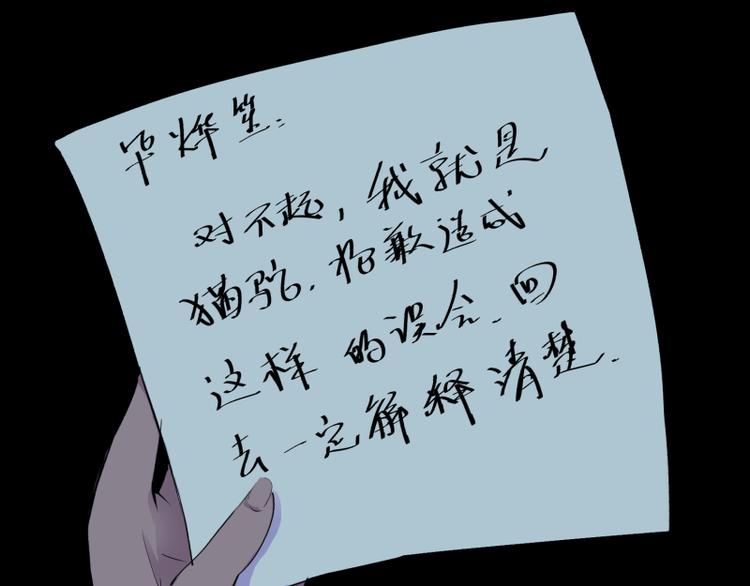 毕烨笙:
对不起,我就是
猫驼.抱歉造成
这样的误会.回
去一定解释清楚.